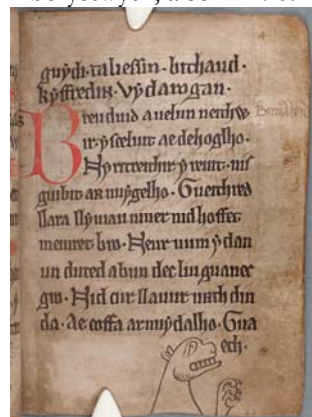 guych. taliessin. bithaud.
kyffredin. vy darogan.
Breuduid a uelun neithw
ir. ysceluit ae dehoglho.
Ny ritreithir y reuit. nis
guibit ar nuygelho. Gueithred
llara llyuiau niuer nid hoffet
meuuret bro. Neur uum y dan
un duted a bun dec liu guanec
gro. Nid eur llauur urth din
da. Ae coffa arnuydalho. Gna
ech.